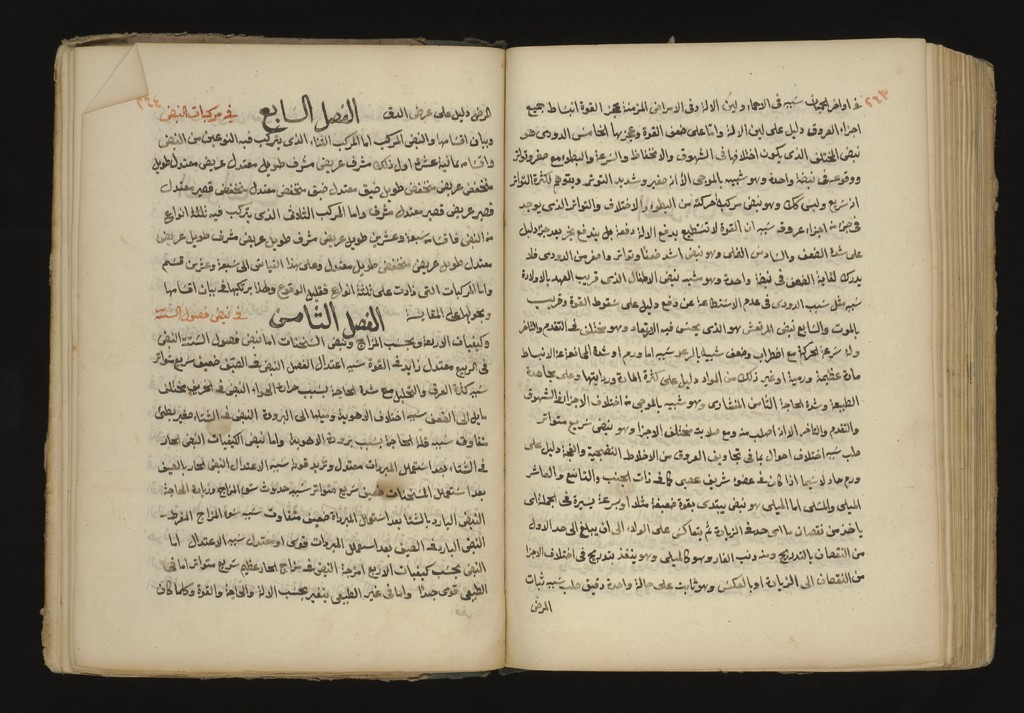 ٢٤٣
في اواخر الحميات سببه في الاحماء ولين الالة وفي الامراض المزمنة عجز القوة انبساط بجميع
اجزاء العروق دليل على لين الالة واما على ضعف القوة وعجزها الخامس الدودى هو
نبض المختلف الذى يكون اختلافها فى الشهوق والانخفاظ والسرعة والبطؤ مع صغر وتواتر
ووقوعه فى نبضة واحدة وهو شبيه بالموجى الا انه صغير وشديد التوتر ويتوهم لكثرة التواتر
انه سريع وليس كك وهو نبض مركبة حركته من البطاء والاختلاف والتواتر الذى يوجد
فى اجزاء عروقه سببه ان القوة لا تستطيع بدفع الالة دفعة بل يندفع بجزء بعد جزء دليل
على شدة الضعف والسادس النملى وهو نبض اشد ضعفا وتواتر واصغر من الدودى فلا
يدرك لغاية الضعف فى نبضة واحدة وهو شبه بنبض الاطفال الذى قريب العهد بالاولادة
سببه مثل سبب الدودى فى عدم الاستطاعة عن دفع دليل على سقوط القوة وقريب
بالموت والسابع نبض المرتعش هو الذى يحس فيه الارتعاد وهو مختلف فى التقدم والتاخر
وله سرعة الحركة مع اضطراب وضعف شبيه بالرعد سببه اما ورم او شدة الى انعة عن الانبساط
مادة عظيمة ورمية او غير ذلك من المواد دليل على كثرة المادة وردايتها وعلى مجاهدة
الطبيعة وشدة الحاجة الثامن المنشارى وهو شبيه بالموجى فى اختلاف الاجزاء فى الشهوق
والتقدم والتاخر الا انه اصلب منه ومع صلابته مختلف الاجزاء وهو نبض سريع متواتر
صلب سببه اختلاف احوال ما فى تجاويف العروق من الاخلاط النضجية والفجة دليل على
ورم حاد لا سيما اذا كان فى عضو شريف عصبى كما فى ذات الجنب والتاسع والعاشر
الميلى والمسلى اما الميلى هو نبض يبتدى بقوة ضعيفة مثلا او سرعة يسيرة فى الجملة الى
ياخذ من نقصان ما الى حد فى الزيادة ثم يتعاكس على الولاء الى ان يبلغ الى حد الاول
من النقصان بالتدريج ومنه ذنب الفار وهو كالميلى وهو ينفذ بتدريج فى اختلاف الاجزا
من النقصان الى الزيادة او بالعكس وهو ثابت على حالة واحدة دقيق صلب سببه ثبات
المرض
٢٤٤
المرض دليل على عرض الدق الفصل السابع فى مركبات النبض
وبيان اقسامها والنبض المركب اما المركب الثناء الذى يتركب فيه النوعين من النبض
واقسامه ثمانية عشرة اول ذلك مشرف عريض مشرف طويل معتدل عريض معتدل طويل
منخفض عريض منخفض طويل ضيق معتدل ضيق منخفض معتدل منخفض قصير معتدل
قصير عريض قصير معتدل مشرف واما المركب الثلاثى الذى يتركب فيه ثلثة انواع
من النبض فاقسامه سبعة وعشرين طويل عريض مشرف طويل عريض مشرف طويل عريض
معتدل طويل عريض منخفض طويل معتدل وعلى هذا القياس الى سبعة وعشرين قسم
واما المركبات التى زادت على ثلثة انواع فقليل الوقوع ولهذا تركتها فى بيان اقسامها
وبحولها على المقايسة الفصل الثامن فى نبض فصول السنة
وكيفيات الاربعة وبحسب المزاج ونبض السحنات اما نبض فصول السنة النبض
فى الربيع معتدل زايد فى القوة سببه اعتدال الفصل النبض فى الصيف ضعيف سريع متواتر
سببه كثرة العرق والتحليل مع شدة الحاجة بسبب حرارة الهواء النبض فى الخريف مختلف
مايل الى الضعف سببه اختلاف الاهوية وميلها الى البرودة النبض فى الشتاء صغير بطئ
متفاوت سببه قلة الحاجة بسبب برودة الاهوية واما نبض الكيفيات النبض الحار
فى الشتاء بعد استعمال المبردات معتدل وتزيد قوته سببه الاعتدال النبض الحار بالصيف
بعد استعمال المسخنات ضعيف سريع متواتر سببه حدوث سوء المزاج وزيادة الحاجة
النبض البارد بالشتاء بعد استعمال المبرداة ضعيف متفاوت سببه سوء المزاج المفرط
النبض البارد فى الصيف بعد استعمال المبردات قوى او معتدل سببه الاعتدال اما
النبض بحسب كيفيات الاربع امزجة النبض فى مزاج الحار عظيم سريع متواتر اما فى
الطبيعى قوى جدا واما فى غير الطبيعى يتغير بحسب الالة والحاجة والقوة وكلما كان